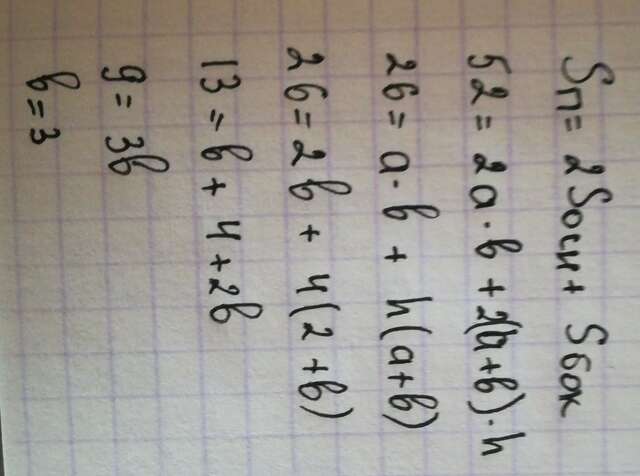 Sп = 2Sосн + Sбок
52 = 2a·b + 2(a+b)·h
26 = a·b + h(a+b)
26 = 2b + 4(2+b)
13 = b + 4 + 2b
9 = 3b
b = 3